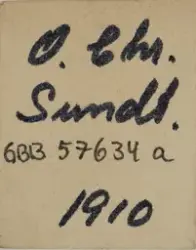 O. Chr.
Sundt.
GBB 57634 a
1910